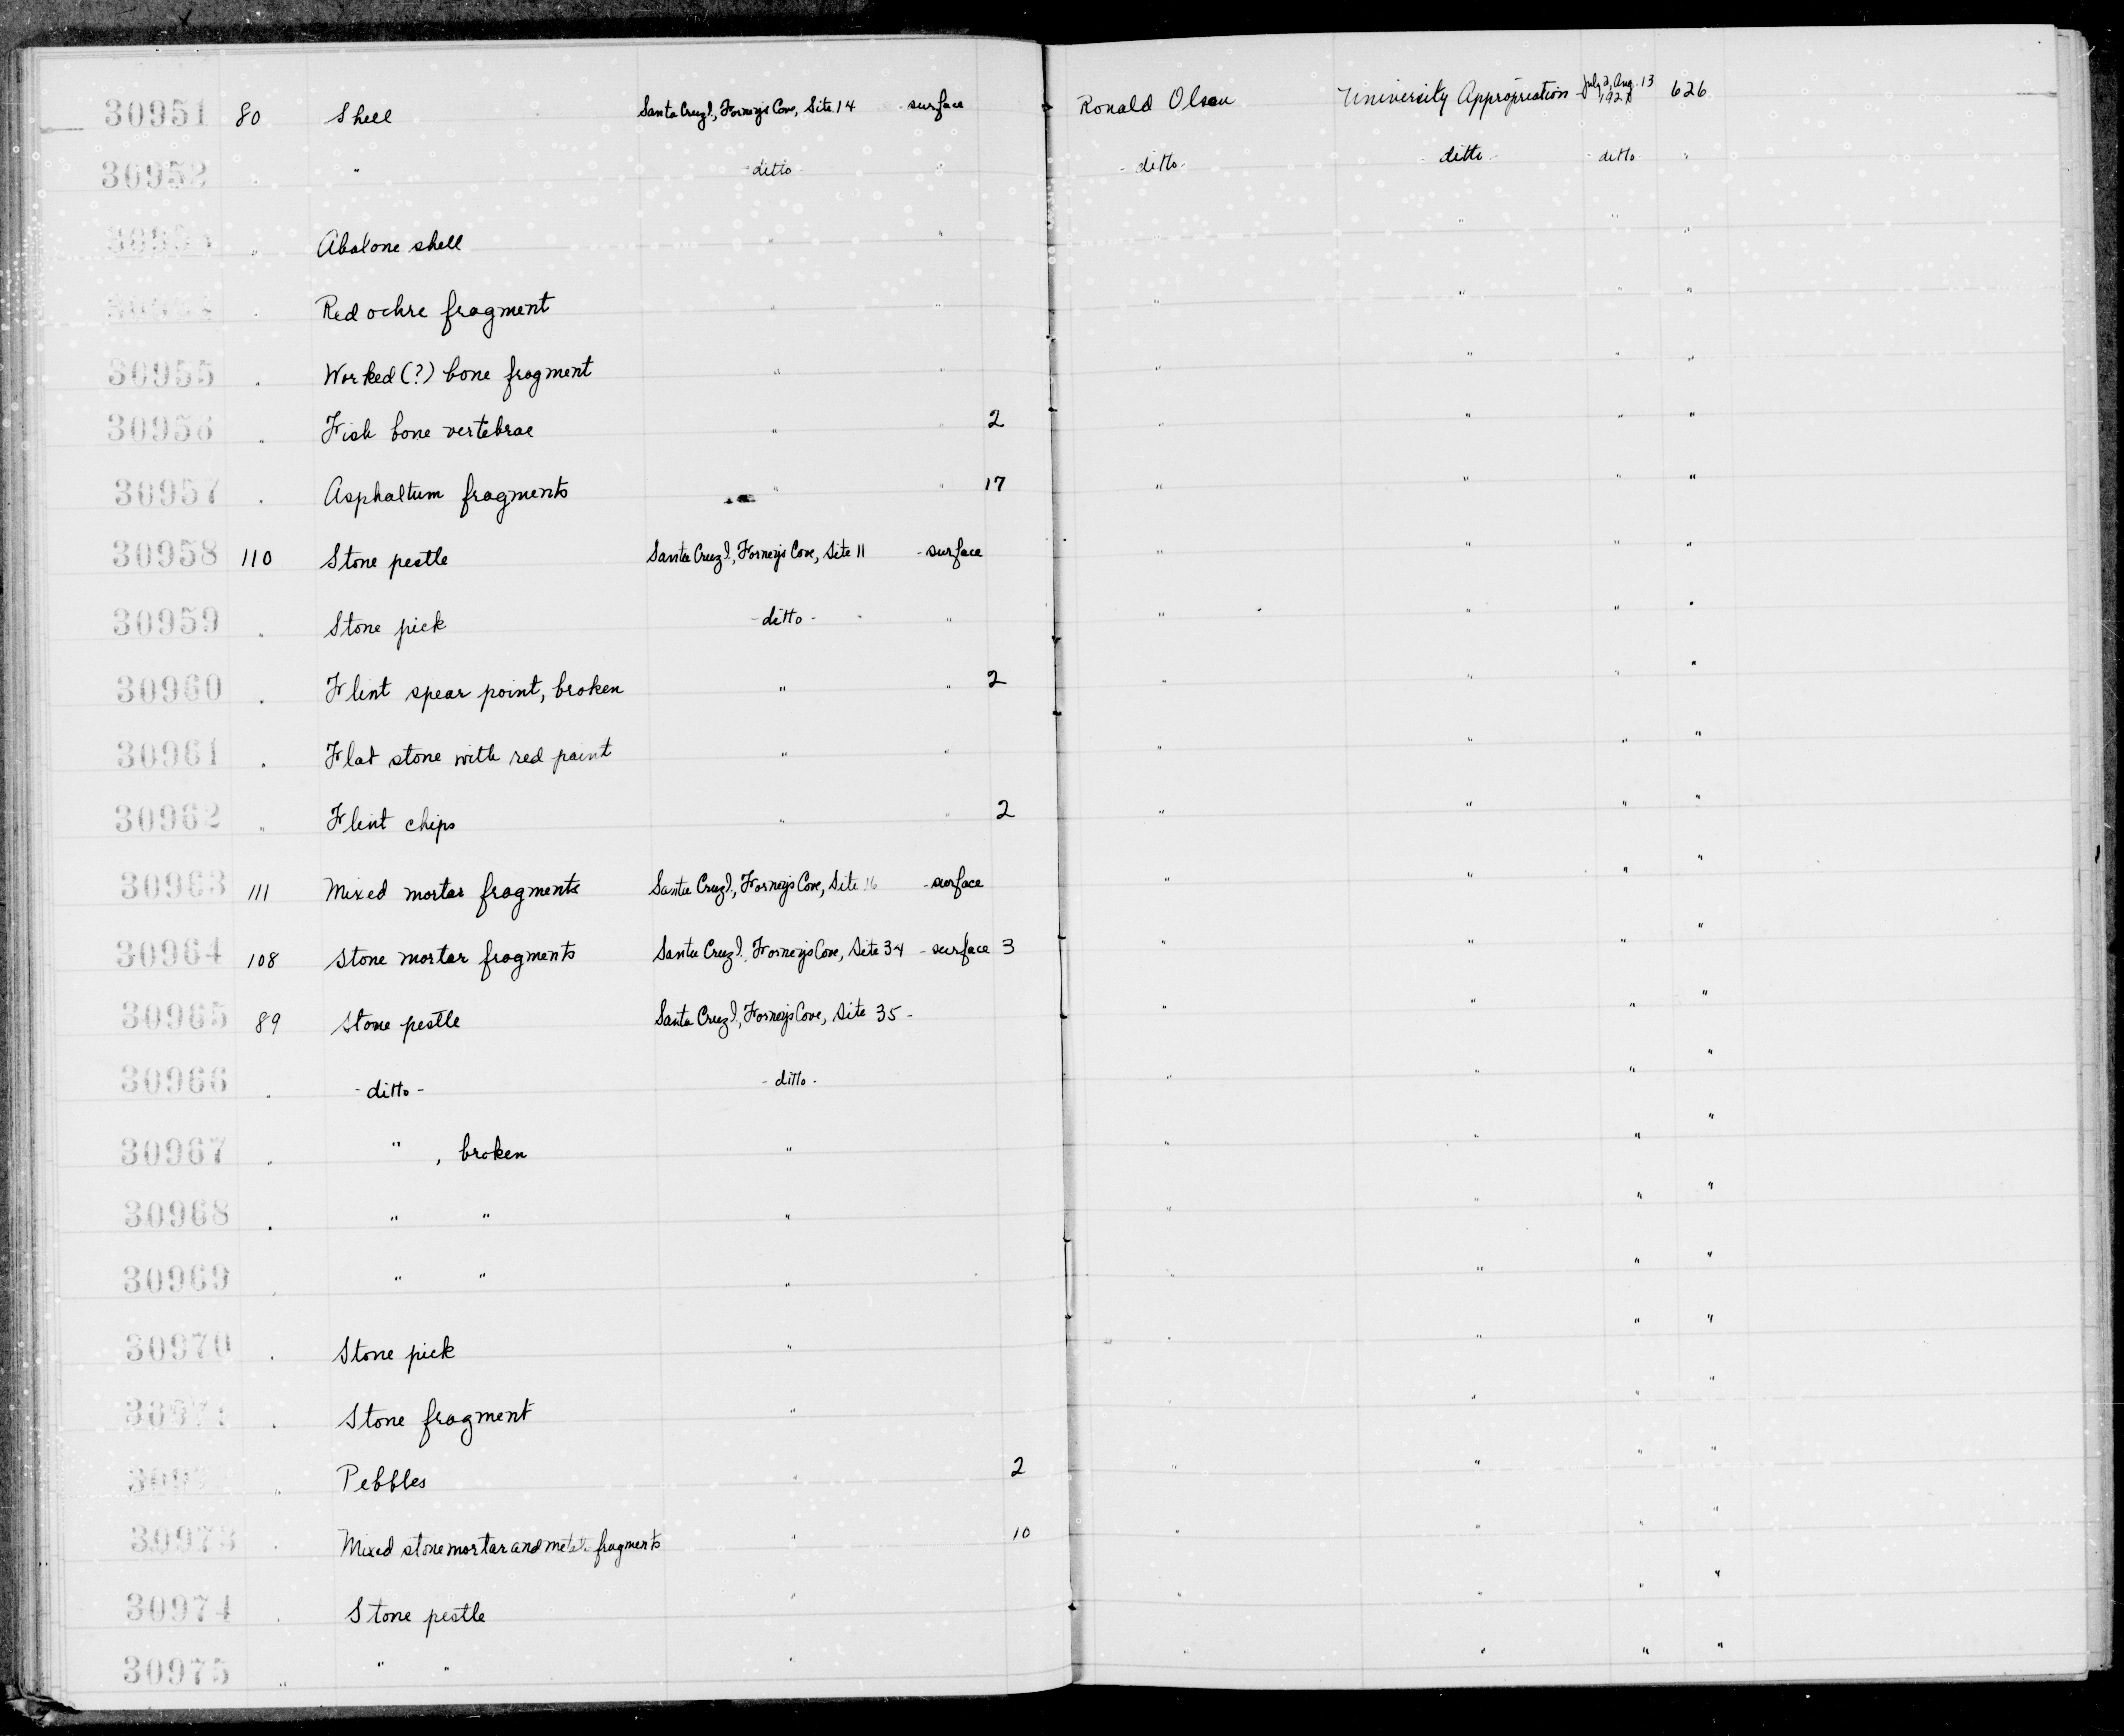 30951 80 Shell Santa Cruz I., Forneys Cove, Site 14 surface Ronald Olson University Appropriation July 2, Aug. 13 626
30952 " " -ditto- " -ditto- -ditto- -ditto- "
" Abalone shell " " " " " "
" Red ochre fragment " " " " " "
30955 " Worked (?) bone fragment " " " " " "
30956 " Fish bone vertebrae " " 2 " " " "
30957 " Asphaltum fragments " " 17 " " " "
30958 110 Stone pestle Santa Cruz I., Forneys Cove, Site 11 - surface " " " "
30959 " Stone pick -ditto- " " " " "
30960 " Flint spear point, broken " " 2 " " " "
30961 " Flat stone with red paint " " " " " "
30962 " Flint chips " " 2 " " " "
30963 111 Mixed mortar fragments Santa Cruz I., Forneys Cove, Site 16 - surface " " " "
30964 108 Stone mortar fragments Santa Cruz I., Forneys Cove, Site 34 - surface 3 " " " "
30965 89 Stone pestle Santa Cruz I., Forneys Cove, Site 35 - " " " "
30966 " -ditto- -ditto- " " " "
30967 " " , broken " " " " "
30968 " " " " " " " "
30969 " " " " " " " "
30970 " Stone pick " " " " "
30971 " Stone fragment " " " " "
" Pebbles " 2 " " " "
30973 " Mixed stone mortar and metate fragments " 10 " " " "
30974 " Stone pestle " " " " "
30975 " " " " " " " "